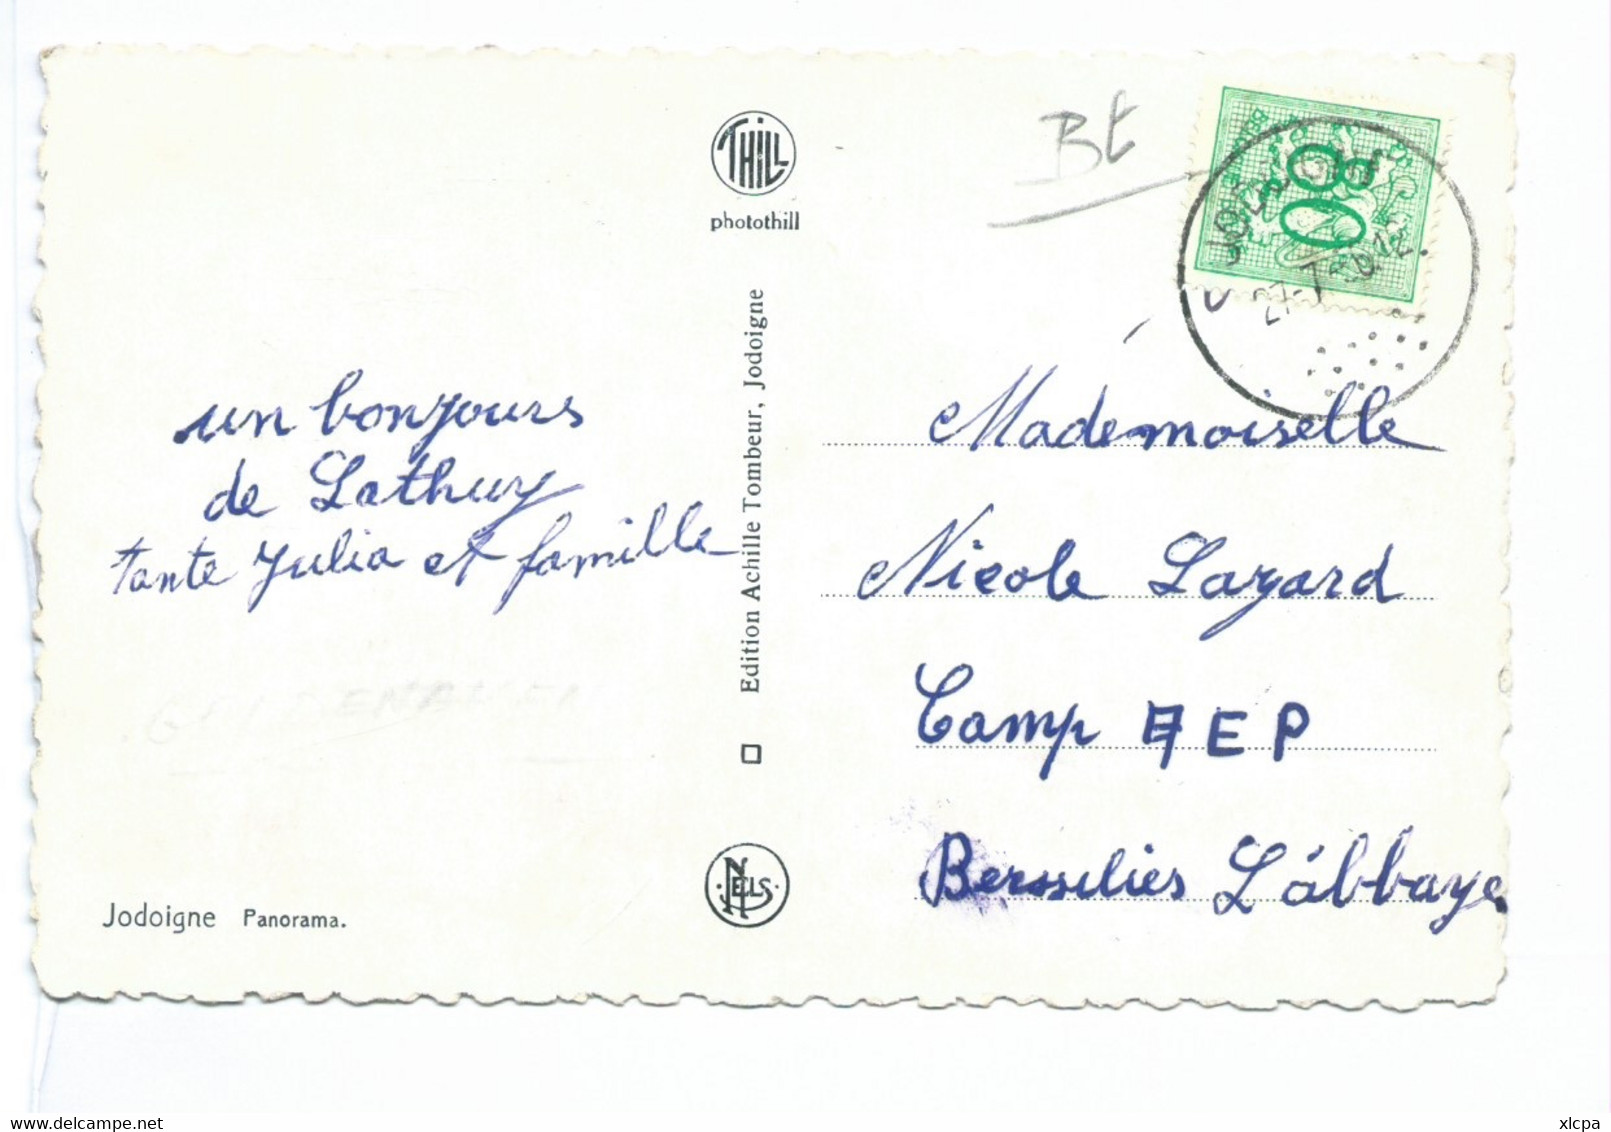 Bt
THILL
photothill
JODOIGNE
80
un bonjours
de Lathuy
tante Julia et famille
Edition Achille Tombeur, Jodoigne
Mademoiselle
Nicole Lazard
Camp F E P
Bersselies L'abbaye
NELS
Jodoigne Panorama.
www.delcampe.net
xlcpa